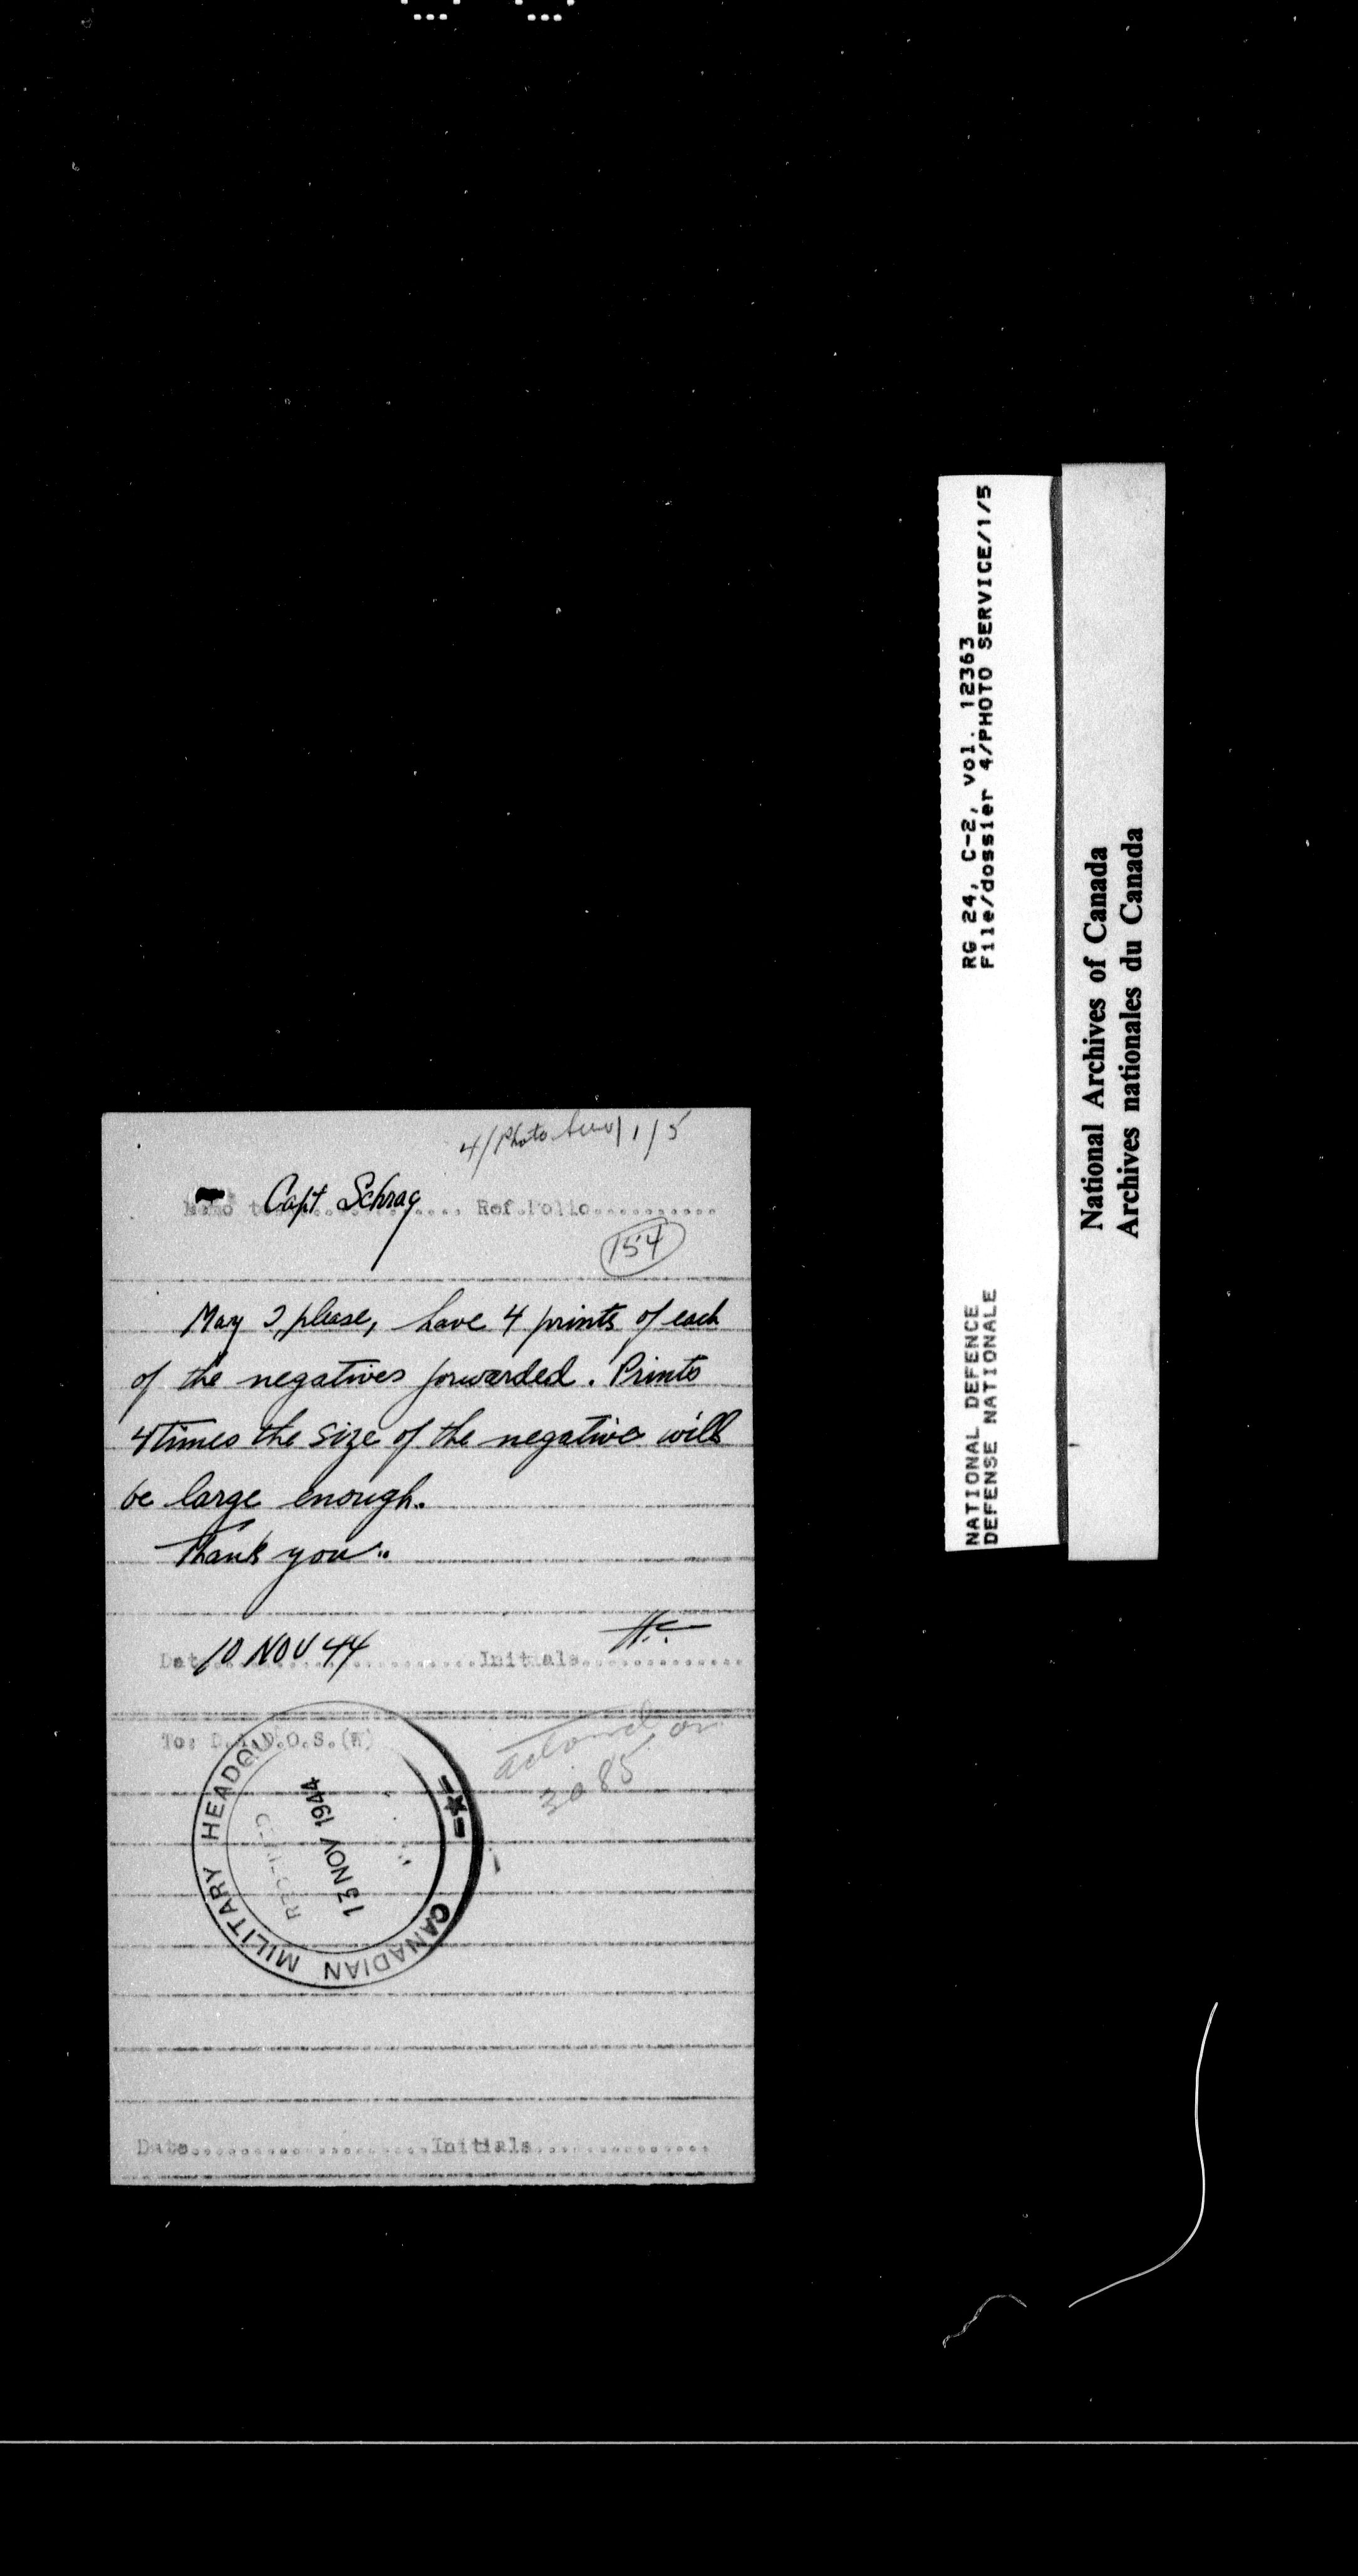 4/Photo Serv/1/5
Memo to: Capt Schrag Ref.Folio
154
May I, please, have 4 prints of each
of the negatives forwarded. Prints
4 times the size of the negative will
be large enough.
Thank you..
Date 10 NOV 44 Initials
To: D.A.D.O.S.(W)
actioned on
3085
CANADIAN MILITARY HEADQU
RECEIVED
13 NOV 1944
Date Initials
RG 24, C-2, vol. 12363
File/dossier 4/PHOTO SERVICE/1/5
NATIONAL DEFENCE
DEFENSE NATIONALE
National Archives of Canada
Archives nationales du Canada